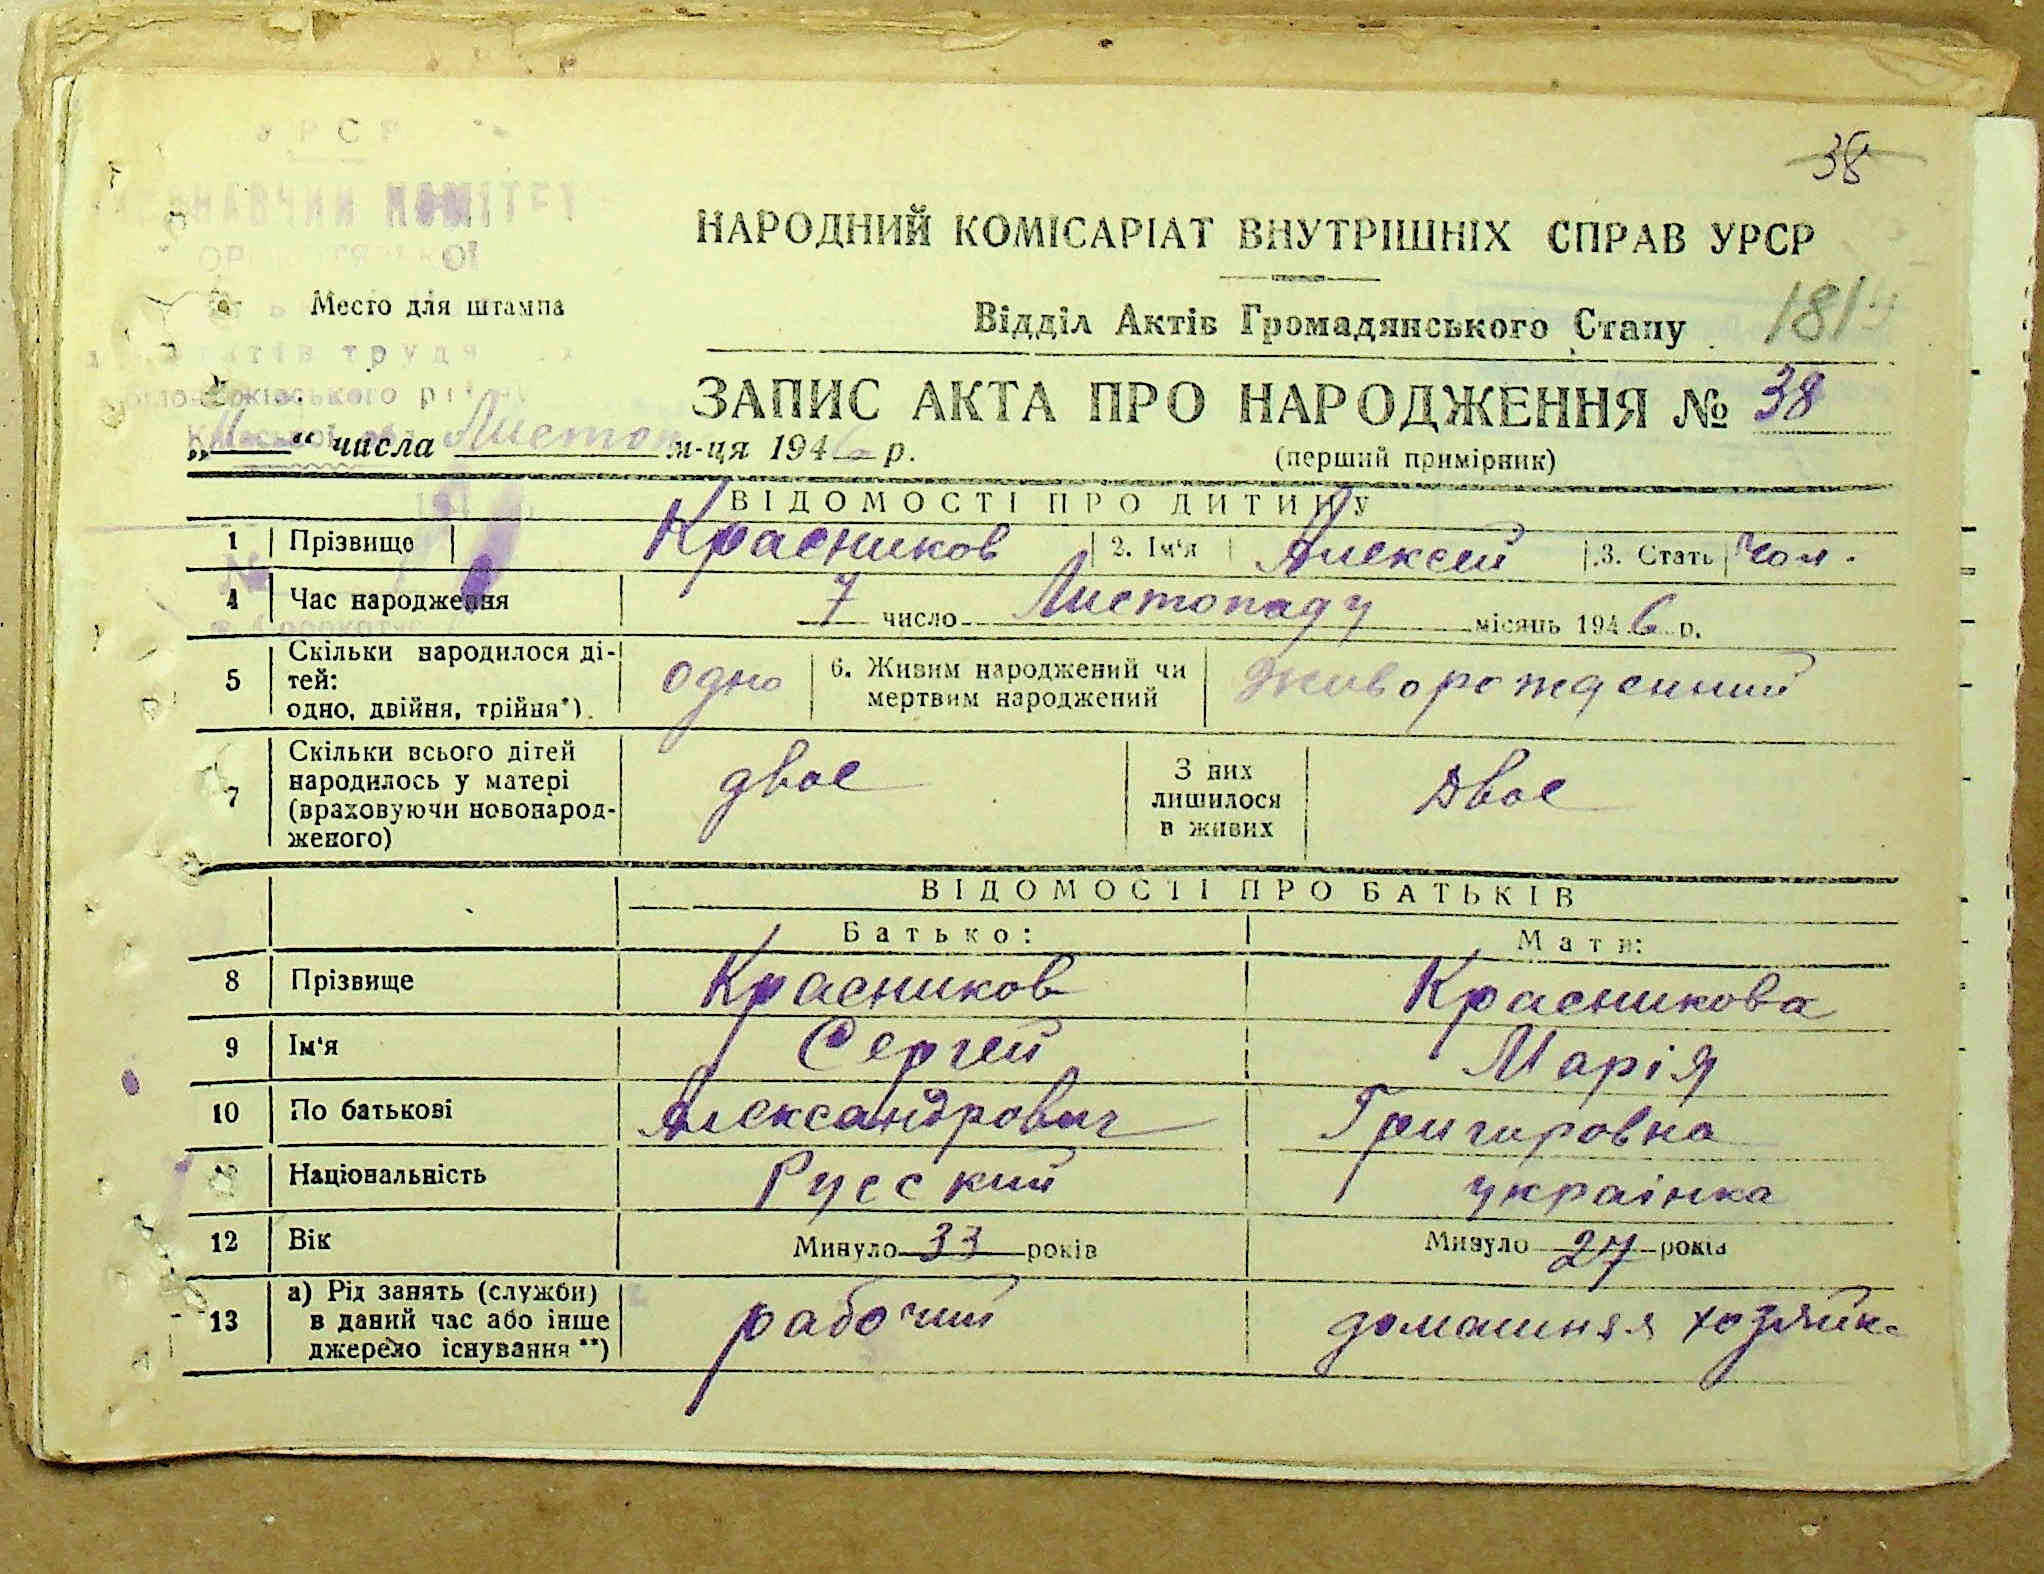 УРСР
38
НАРОДНИЙ КОМІСАРІАТ ВНУТРІШНІХ СПРАВ УРСР
Место для штампа
Відділ Актів Громадянського Стану
181
ЗАПИС АКТА ПРО НАРОДЖЕННЯ № 38
„ “ числа Листоп м-ця 1946 р.
(перший примірник)
ВІДОМОСТІ ПРО ДИТИНУ
1 Прізвище Красников 2. Ім'я Алексей 3. Стать Чол.
4 Час народження 7 число Листопаду місяць 1946 р.
5 Скільки народилося ді-
тей:
одно, двійня, трійня*).
одно
6. Живим народжений чи
мертвим народжений
живорожденний
7 Скільки всього дітей
народилось у матері
(враховуючи новонарод-
женого)
двое
З них
лишилося
в живих
Двое
ВІДОМОСТІ ПРО БАТЬКІВ
Батько: Мати:
8 Прізвище Красников Красникова
9 Ім'я Сергей Марія
10 По батькові Александрович Григоровна
Національність Русский українка
12 Вік Минуло 33 років Минуло 27 років
13 а) Рід занять (служби)
в даний час або інше
джерело існування **)
рабочий домашняя хозяйк